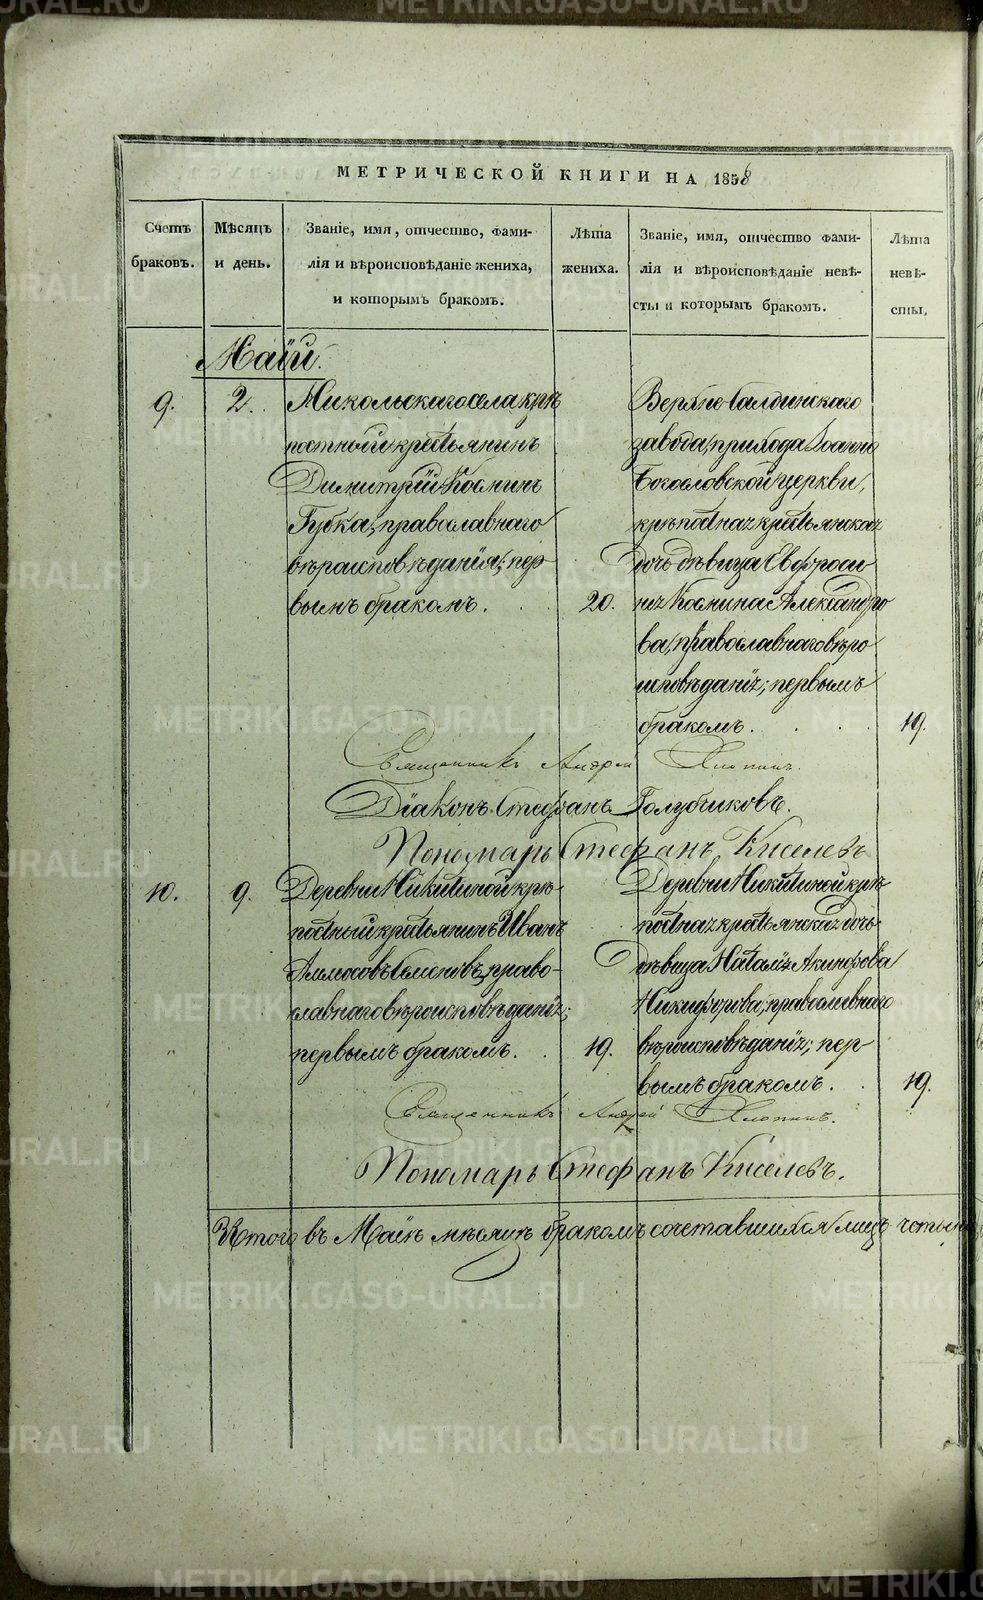 МЕТРИЧЕСКОЙ КНИГИ НА 1858
Счетъ браковъ.
Мѣсяцъ и день.
Званіе, имя, отчество, фами-
лія и вѣроисповѣданіе жениха,
и которымъ бракомъ.
Лѣта жениха.
Званіе, имя, отчество фами-
лія и вѣроисповѣданіе невѣ-
сты и которымъ бракомъ.
Лѣта невѣ-
сты.
Маій.
9.
2.
Никольскаго села крѣ
постный крестьянинъ
Димитрій Косминъ
Губка, православнаго
вѣроисповѣданія; пер
вымъ бракомъ.
20.
Верхне Салдинскаго
завода, прихода Іоанно
Богословской церкви,
крѣпостная крестьянская
дочь дѣвица Евфроси
нія Космина Александро
ва, православнаго вѣро
исповѣданія; первымъ
бракомъ.
19.
Священникъ Андрей Хлопинъ.
Діаконъ Стефанъ Голубчиковъ.
Пономарь Стефанъ Киселевъ
10.
9.
Деревни Никитиной крѣ
постный крестьянинъ Иванъ
Аммосовъ Семеновъ, право-
славнаго вѣроисповѣданія;
первымъ бракомъ.
19.
Деревни Никитиной крѣ
постная крестьянская дочь
дѣвица Наталія Акинфова
Никифорова, православнаго
вѣроисповѣданія; пер
вымъ бракомъ.
19.
Священникъ Андрей Хлопинъ.
Пономарь Стефанъ Киселевъ.
Итого въ Маіѣ мѣсяцѣ бракомъ сочетавшихся лицъ четыре
METRIKI.GASO-URAL.RU